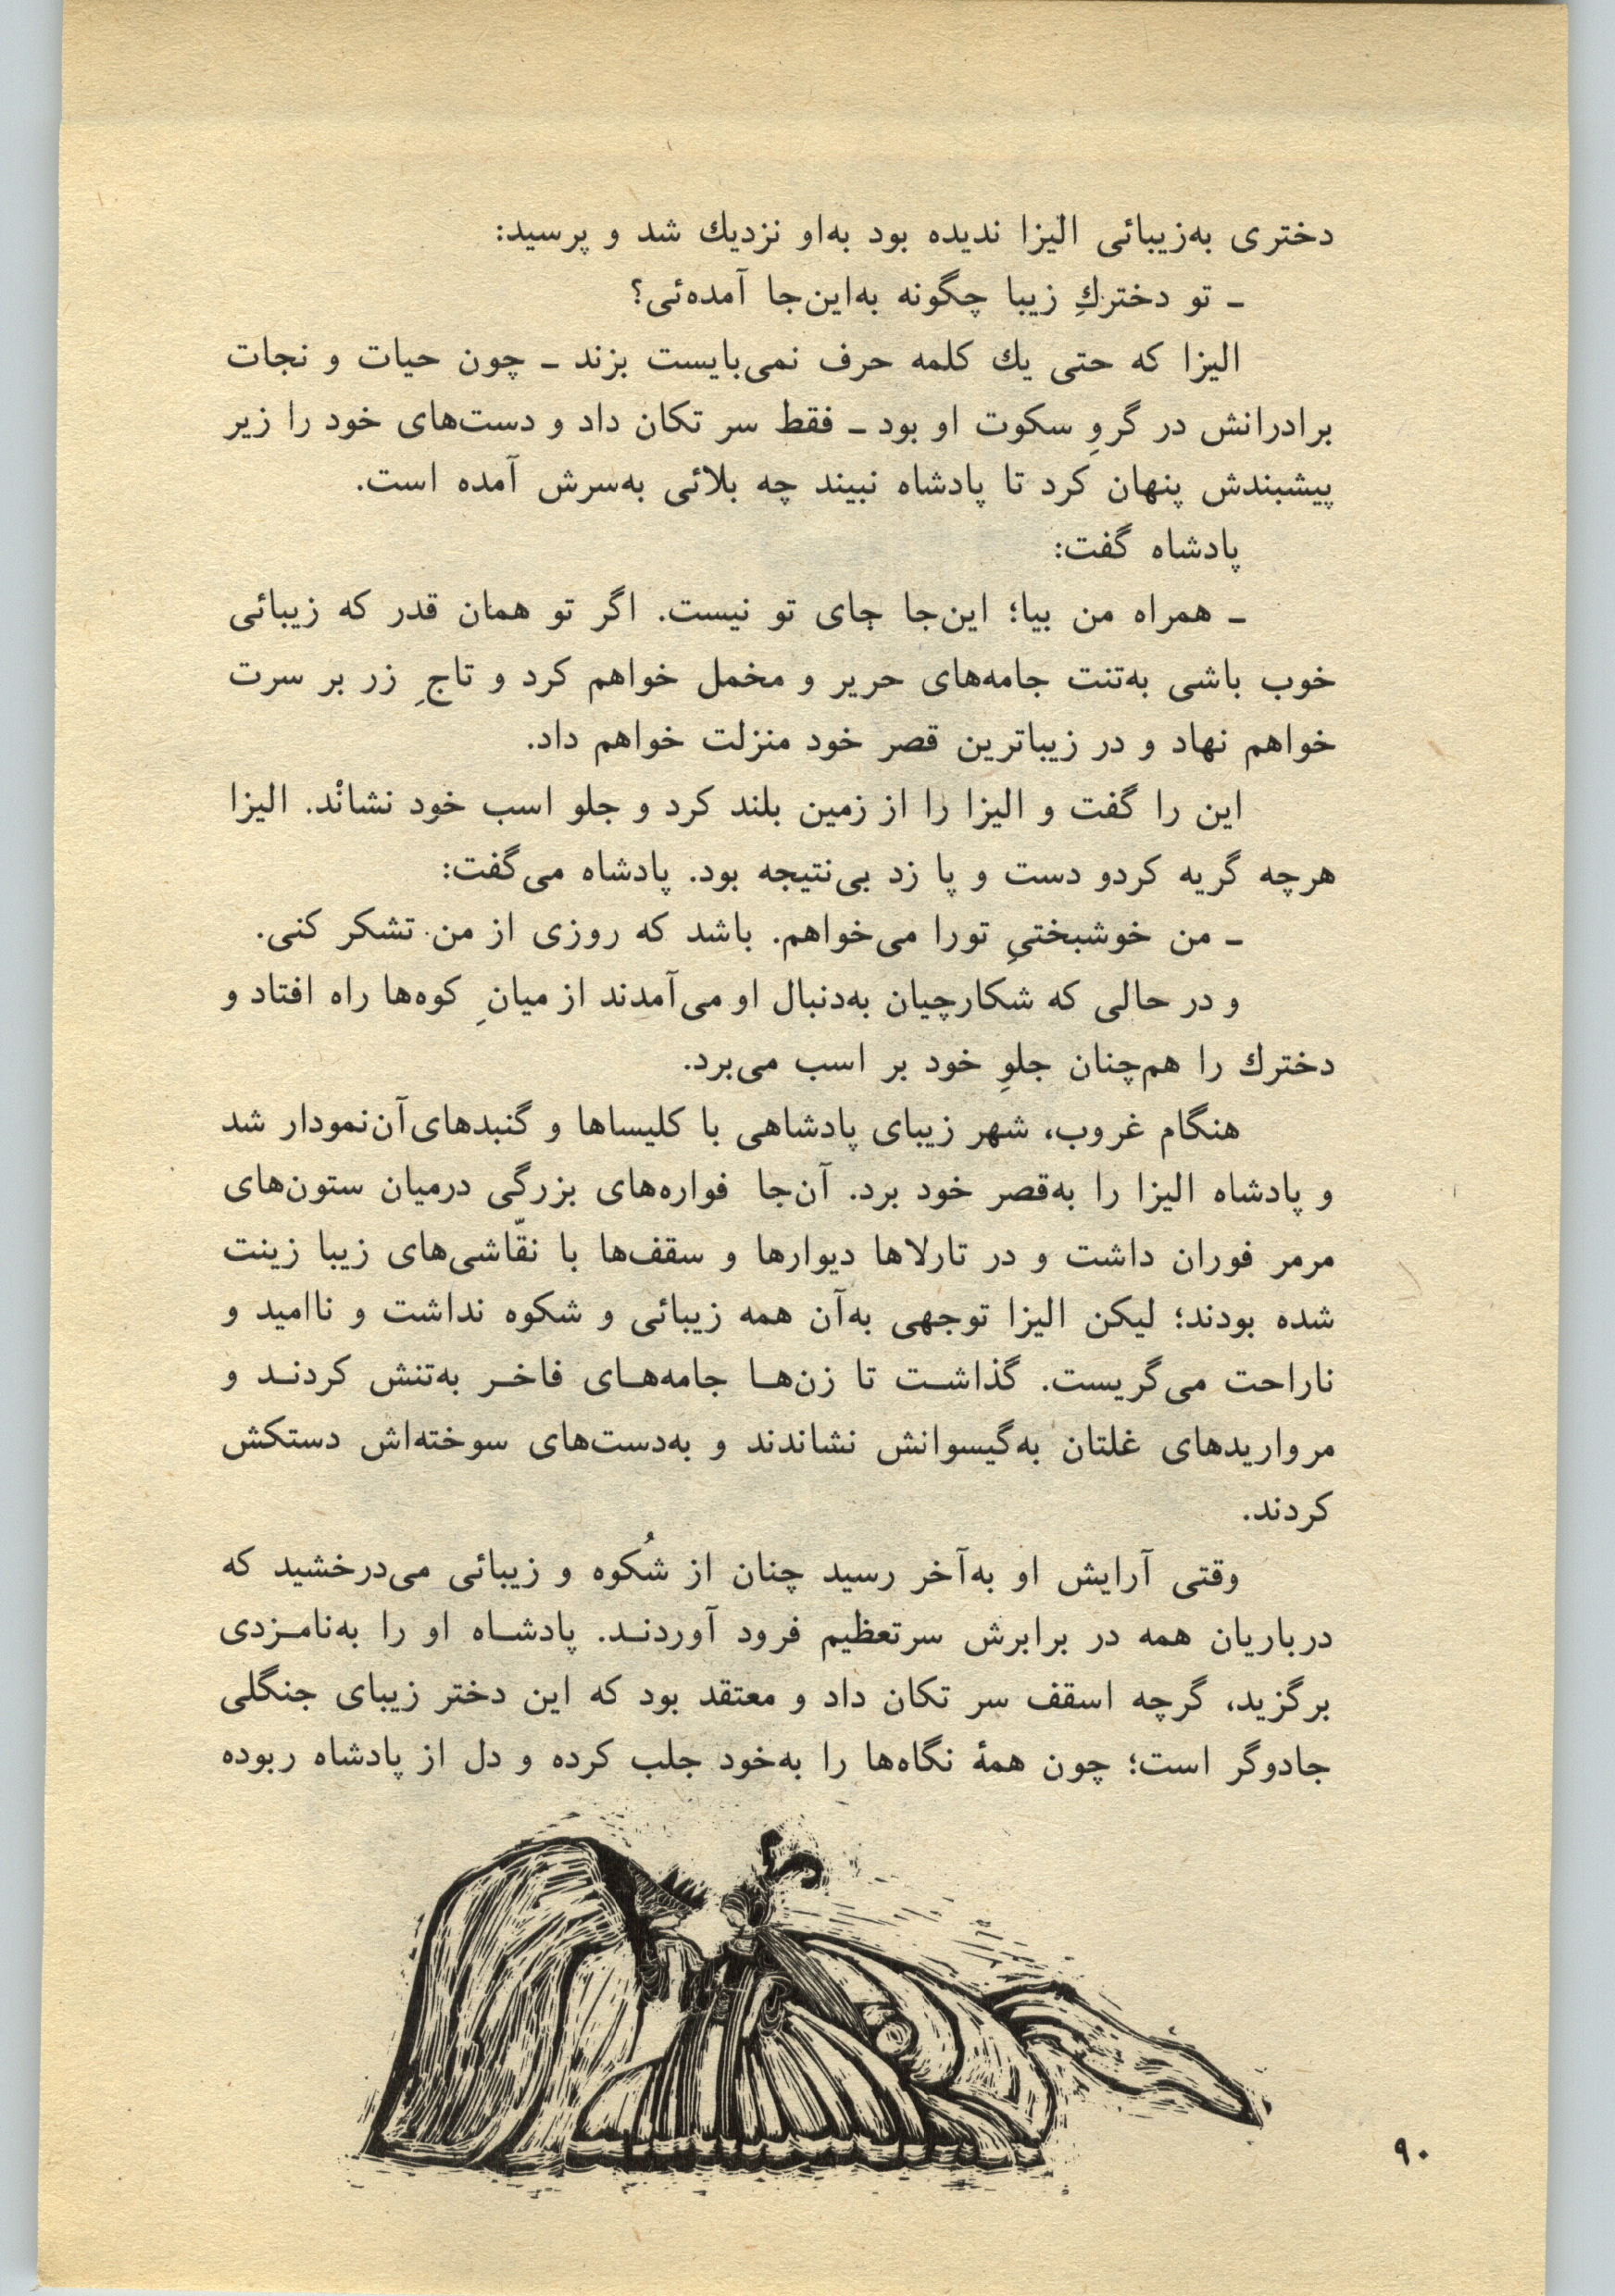 دختری به‌زیبائی الیزا ندیده بود به‌او نزدیك شد و پرسید:
ـ تو دختركِ زیبا چگونه به‌این‌جا آمده‌ئی؟
الیزا که حتی یك کلمه حرف نمی‌بایست بزند ـ چون حیات و نجات
برادرانش در گروِ سکوت او بود ـ فقط سر تکان داد و دست‌های خود را زیر
پیشبندش پنهان کرد تا پادشاه نبیند چه بلائی به‌سرش آمده است.
پادشاه گفت:
ـ همراه من بیا؛ این‌جا جای تو نیست. اگر تو همان قدر که زیبائی
خوب باشی به‌تنت جامه‌های حریر و مخمل خواهم کرد و تاجِ زر بر سرت
خواهم نهاد و در زیباترین قصر خود منزلت خواهم داد.
این را گفت و الیزا را از زمین بلند کرد و جلو اسب خود نشانْد. الیزا
هرچه گریه کردو دست و پا زد بی‌نتیجه بود. پادشاه می‌گفت:
ـ من خوشبختیِ تورا می‌خواهم. باشد که روزی از من تشکر کنی.
و در حالی که شکارچیان به‌دنبال او می‌آمدند از میانِ کوه‌ها راه افتاد و
دخترك را هم‌چنان جلوِ خود بر اسب می‌برد.
هنگام غروب، شهر زیبای پادشاهی با کلیساها و گنبدهای‌آن‌نمودار شد
و پادشاه الیزا را به‌قصر خود برد. آن‌جا فواره‌های بزرگی درمیان ستون‌های
مرمر فوران داشت و در تارلاها دیوارها و سقف‌ها با نقّاشی‌های زیبا زینت
شده بودند؛ لیکن الیزا توجهی به‌آن همه زیبائی و شکوه نداشت و ناامید و
ناراحت می‌گریست. گذاشت تا زن‌ها جامه‌های فاخر به‌تنش کردند و
مرواریدهای غلتان به‌گیسوانش نشاندند و به‌دست‌های سوخته‌اش دستکش
کردند.
وقتی آرایش او به‌آخر رسید چنان از شُکوه و زیبائی می‌درخشید که
درباریان همه در برابرش سرتعظیم فرود آوردند. پادشاه او را به‌نامزدی
برگزید، گرچه اسقف سر تکان داد و معتقد بود که این دختر زیبای جنگلی
جادوگر است؛ چون همۀ نگاه‌ها را به‌خود جلب کرده و دل از پادشاه ربوده
۹۰